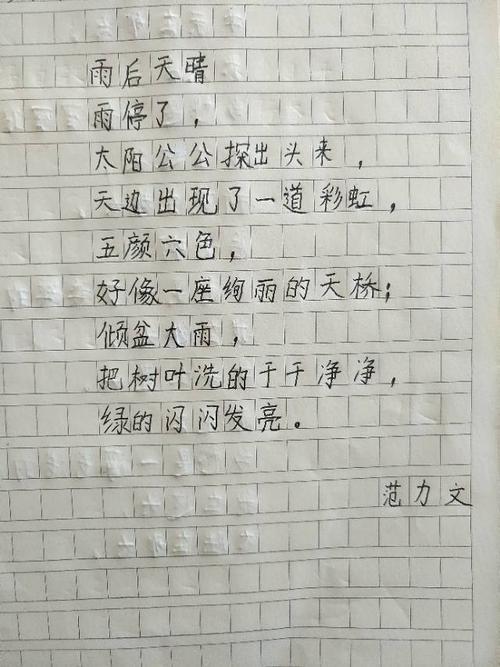 雨后天晴
雨停了，
太阳公公探出头来，
天边出现了一道彩虹，
五颜六色，
好像一座绚丽的天桥；
倾盆大雨，
把树叶洗的干干净净，
绿的闪闪发亮。
范力文